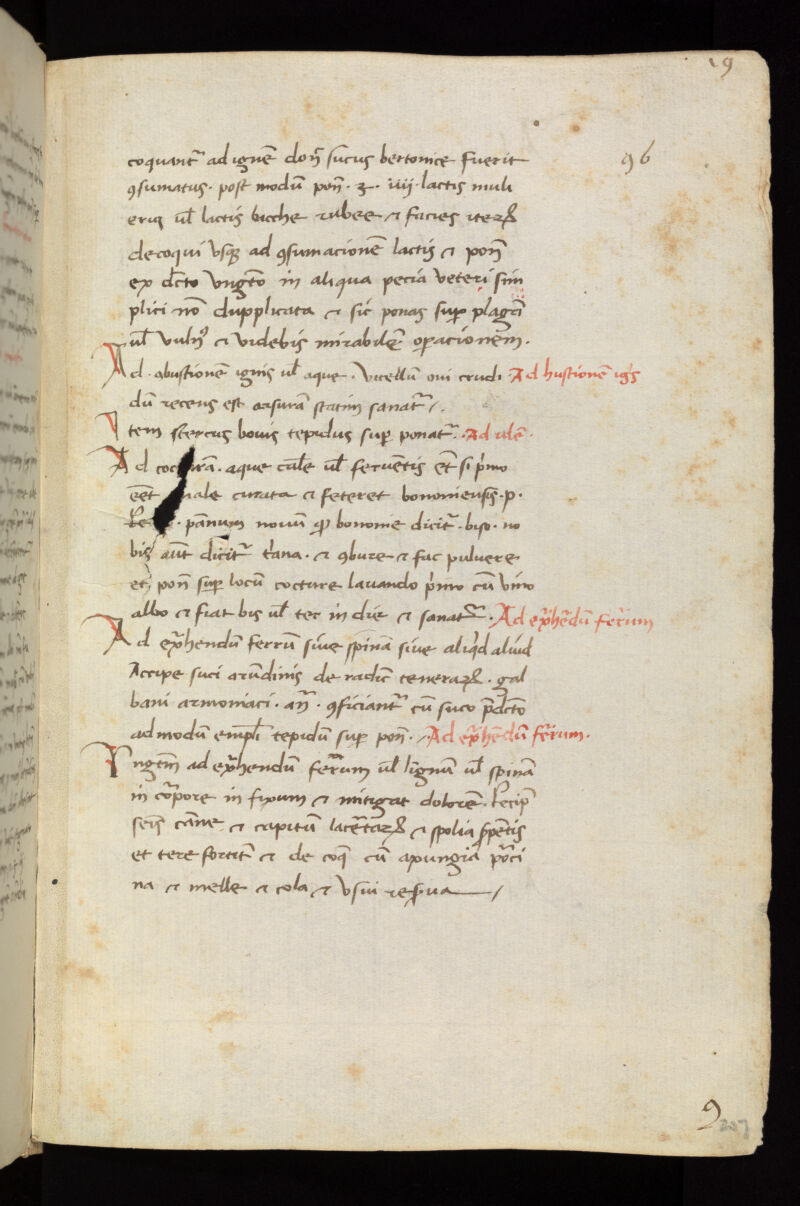 19
96
coquantr̃ ad ignẽ doñ sucus bertonice fuerit
ꝯsumatus · post modũ poñ · ʒ · iiij · lactis muli
eris uł lactis bicche rubee ⁊ facies iterꝝ
decoqui usqꝫ ad ꝯsumacionẽ lactis ⁊ poñ
ex dc̃to ungẽto in aliqua pecia veteri sim
plici nõ dupplicata ⁊ sic ponas suꝑ plagã
uł vuln9 ⁊ videbis mirabilẽ oꝑacionem ·
Ad · ꝯbustionẽ ignis uł aque · vitellum oui crudi · Ad hustionẽ igs̃
dũ recens est arsurã statim sanatr̃ /.
Item stercus bouis tepidus suꝑ ponatr̃ · Ad idẽ ·
Ad aque cal̃e uł feruẽtis et̃ si p̃mo
eẽt male curata ⁊ feteret bononiensis · p ·
· pãnum nouũ qđ bononie dicitr̃ · biso · no
bis aũt dicitr̃ t̃ana · ⁊ ꝯbure ⁊ fac puluere
et poñ suꝑ locũ cocture lauando p̃mo cũ vino
albo ⁊ fiat bis uł ter in die ⁊ sanatr̃ · Ad exr̃hẽdũ ferrum
Ad exr̃hendũ ferrũ siue spinã siue aliqđ aliud
Accipe suci arũdinis de radic̃ tenerarꝝ · gal
bani armoniaci · añ · ꝯficiantr̃ cũ suco p̃dc̃to
ad modũ empłi tepidũ suꝑ poñ · Ad exr̃hẽdũ ferrum ·
Vngẽtm̃ ad exr̃hendũ ferrum uł lignũ uł spinã
in corpore in fixum ⁊ mitigat dolorẽ · Recip̃
⁊ capitũ lacẽtarꝝ ⁊ spolia ſꝑpentis
et tere fortitr̃ ⁊ de coq̃ cũ axungia porci
na ⁊ melle ⁊ cola ⁊ usui reserua /
9
207